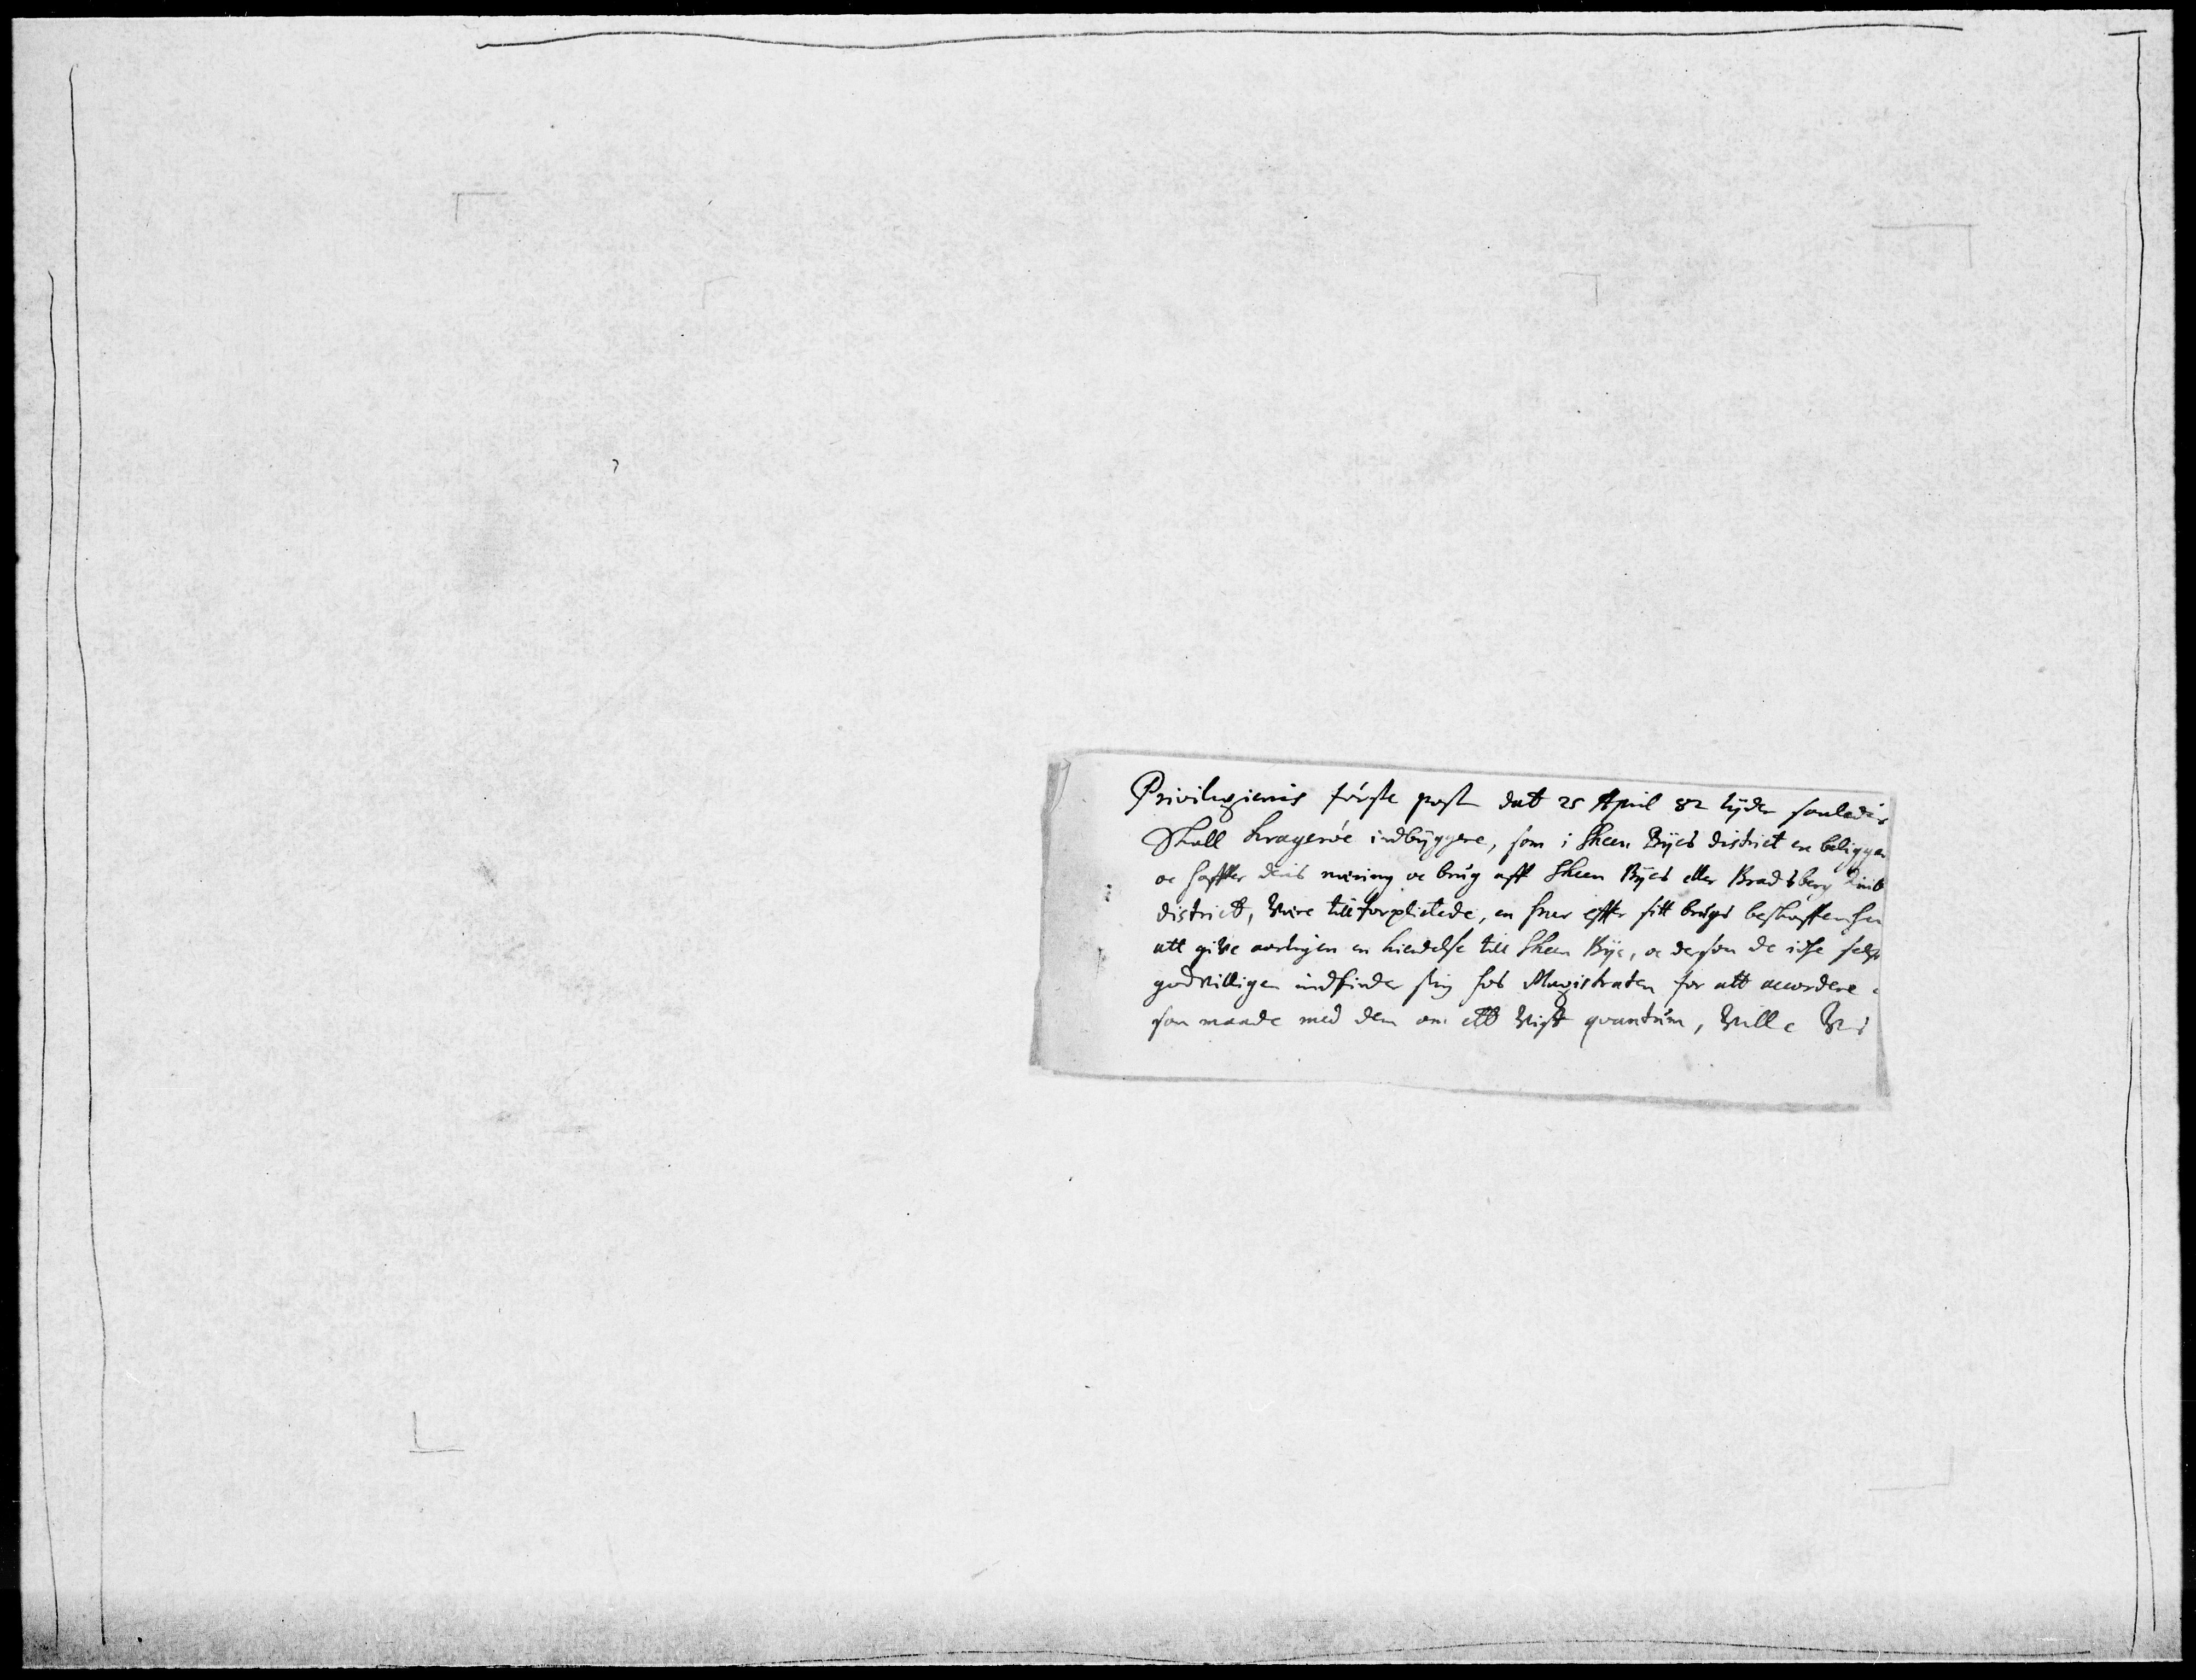 Privilegiernis første post dat 25 April 82 lyder saaledis
Skall Kragerøe indbyggere, som i Skeen Byes district ere beliggen
oc haffver deris næring oc brug aff Skeen Byes eller Bradsberg
district, være tillforplictede, en hver effter sitt brugs beskaffenhe
att give aarligen en kiendelse till Skeen Bye, oc dersom de icke selff
godvilligen indfinder sig hos Magistraten for att accordere
saa maade med dem om ett vist qvantum, ville Vi